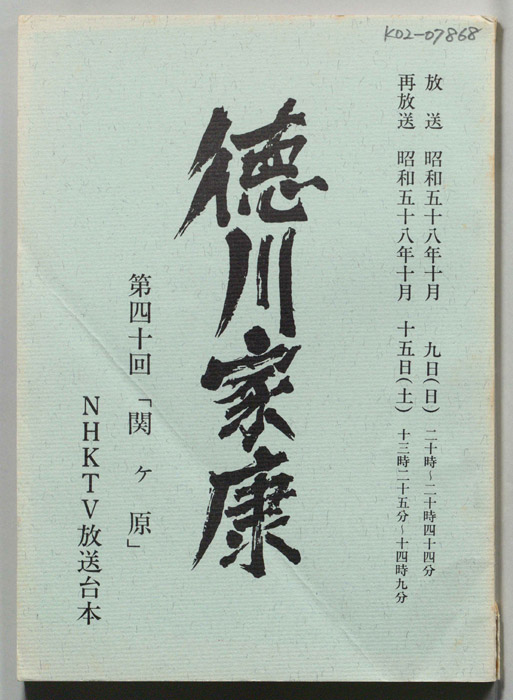 K02-07868
放送 昭和五十八年十月 九日(日) 二十時~二十時四十四分
再放送 昭和五十八年十月 十五日(土) 十三時二十五分~十四時九分
徳川家康
第四十回「関ヶ原」
NHKTV放送台本